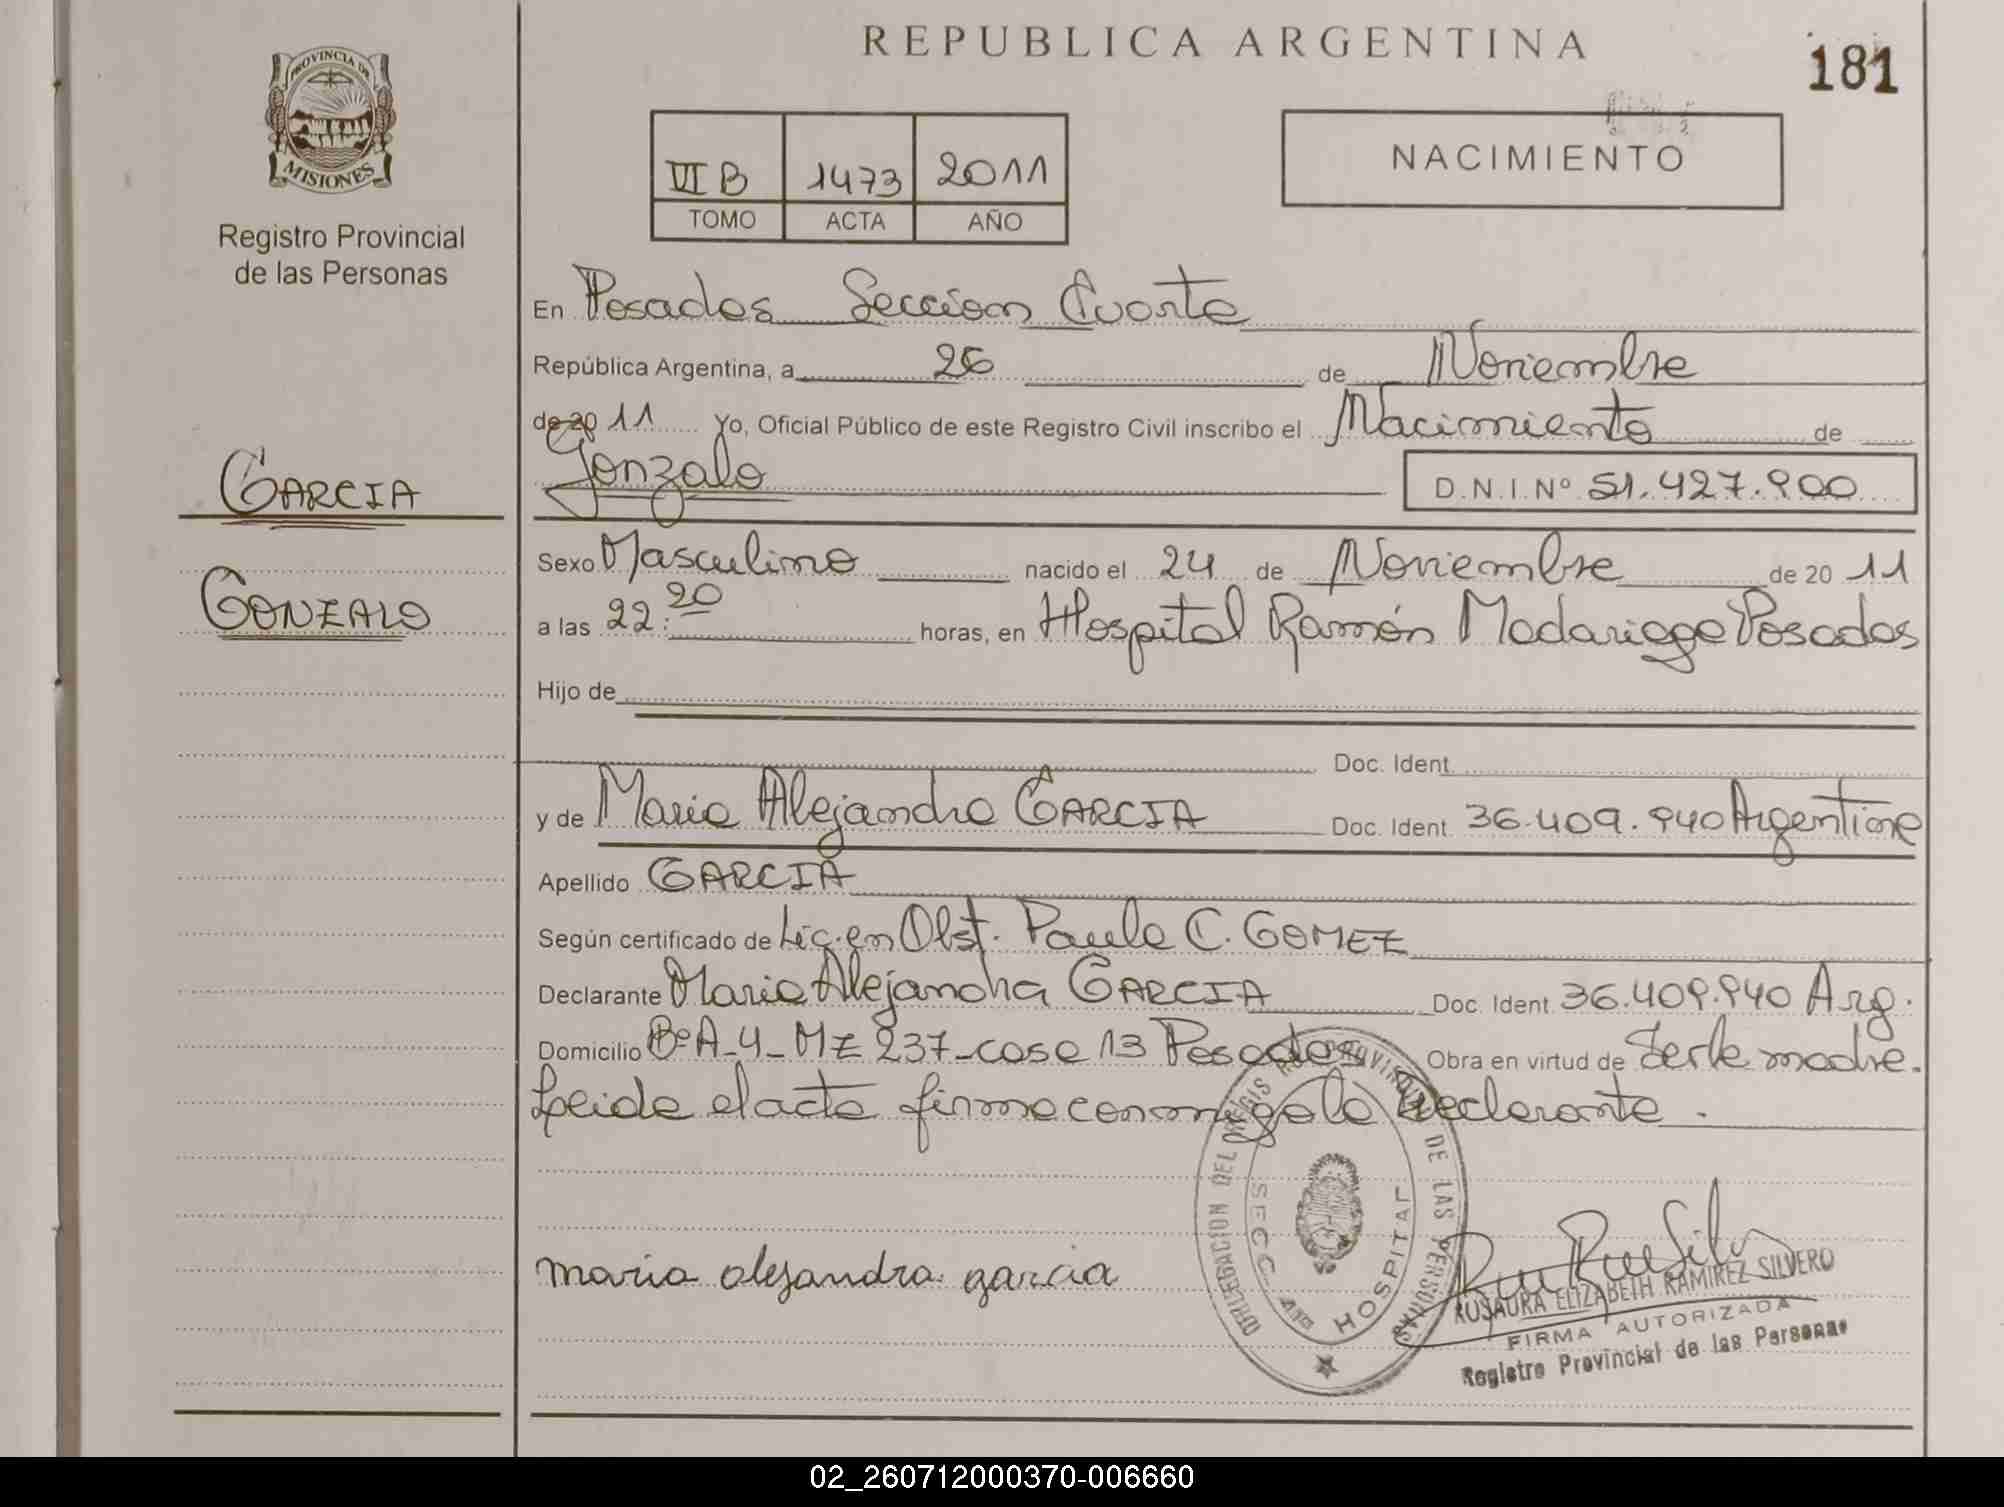 REPUBLICA ARGENTINA
181
PROVINCIA DE
MISIONES
Registro Provincial
de las Personas
VI B 1473 2011
TOMO ACTA AÑO
NACIMIENTO
En Posadas Seccion Cuarta
República Argentina, a 26 de Noviembre
de 2011 Yo, Oficial Público de este Registro Civil inscribo el Nacimiento de
GARCIA
Gonzalo
D.N.I.Nº 51.427.900
Sexo Masculino nacido el 24 de Noviembre de 2011
GONZALO
a las 22:20 horas, en Hospital Ramón Madariaga Posadas
Hijo de
Doc. Ident.
y de Maria Alejandra GARCIA Doc. Ident. 36.409.940 Argentina
Apellido GARCIA
Según certificado de Lic. en Obst. Paula C. GOMEZ
Declarante Maria Alejandra GARCIA Doc. Ident. 36.409.940 Arg.
Domicilio BºA-4-MZ 237-casa 13 Posadas Obra en virtud de Ser la madre.
Leida el acta firma conmigo la Declarante.
DELEGACION DEL REGISTRO PROVINCIAL DE LAS PERSONAS
SECC. 4ta HOSPITAL
maria alejandra garcia
ROSAURA ELIZABETH RAMIREZ SILVERO
FIRMA AUTORIZADA
Registro Provincial de las Personas
02_260712000370-006660